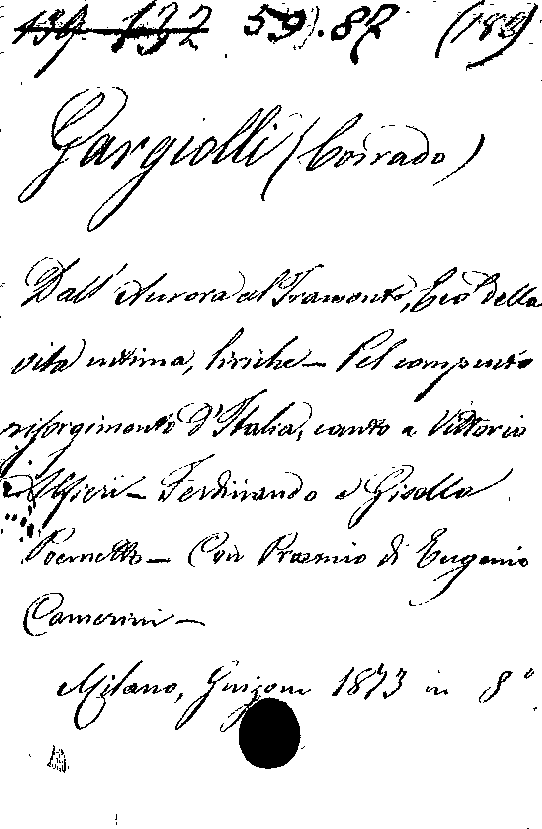 139 132 59).87 (189)
Gargiolli (Corrado)
Dall' Aurora al Tramonto, Eco della
vita intima, liriche — Pel compiuto
risorgimento d'Italia, canto a Vittorio
Alfieri — Ferdinando e Gisella
Poemetto — Con Proemio di Eugenio
Camerini —
Milano, Guigoni 1873 in 8°